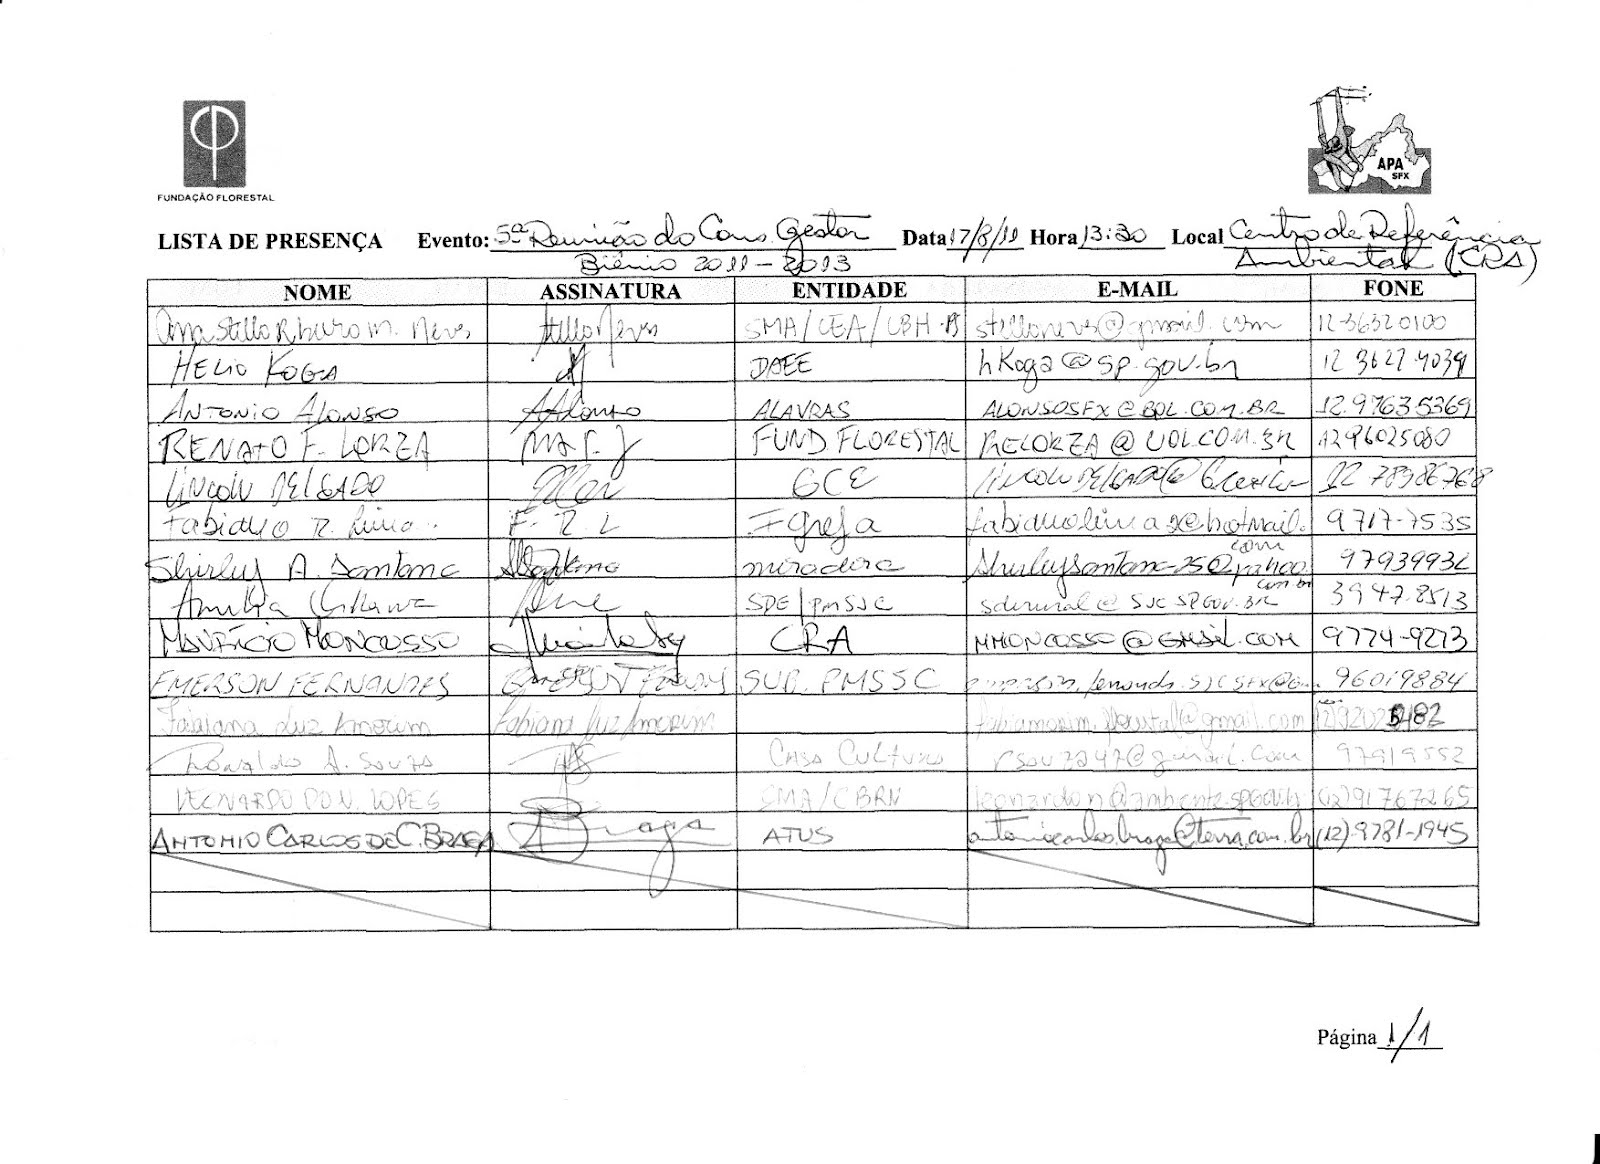 FUNDAÇÃO FLORESTAL
APA
SFX
LISTA DE PRESENÇA Evento: 5ª Reunião do Cons. Gestor Data 17/8/11 Hora 13:30 Local Centro de Referência
Biênio 2011-2013 Ambiental (CRA)
NOME ASSINATURA ENTIDADE E-MAIL FONE
Neves Stella Neves SMA/CEA/CBH stellaneves@gmail.com 12-36320100
HELIO KOGA DAEE hKoga@sp.gov.br
ANTONIO ALONSO AAlonso ALAVRAS ALONSOSFX@BOL.COM.BR 12.97635369
RENATO F. LORZA FUND FLORESTAL RELORZA@UOL.COM.BR 1296025080
LINCOLN DELGADO GCE 12 78386768
Fabiano R. Lima F. R. L Igreja fabianolima2@hotmail.com 9717-7535
Shirley A. Santana miradora Shirleysantana-25@yahoo.com.br 97939932
SDE/PMSJC sderural@SJC.SP.GOV.BR 3947.8513
MAURÍCIO MONCOSSO CRA MMONCOSSO@GMAIL.COM 9774-9273
EMERSON FERNANDES SUB. PMSSC 96019884
Fabiana Luz Amorim Fabiana Luz Amorim fabiamorim.florestal@gmail.com
Ronaldo A. Souza Casa Cultura rsouza247@gmail.com 97919552
LEONARDO DO N. LOPES SMA/CBRN (12)91767265
ANTONIO CARLOS DE C. BRAGA Braga ATUS antoniocarlos.braga@terra.com.br (12) 9781-1945
Página 1/1